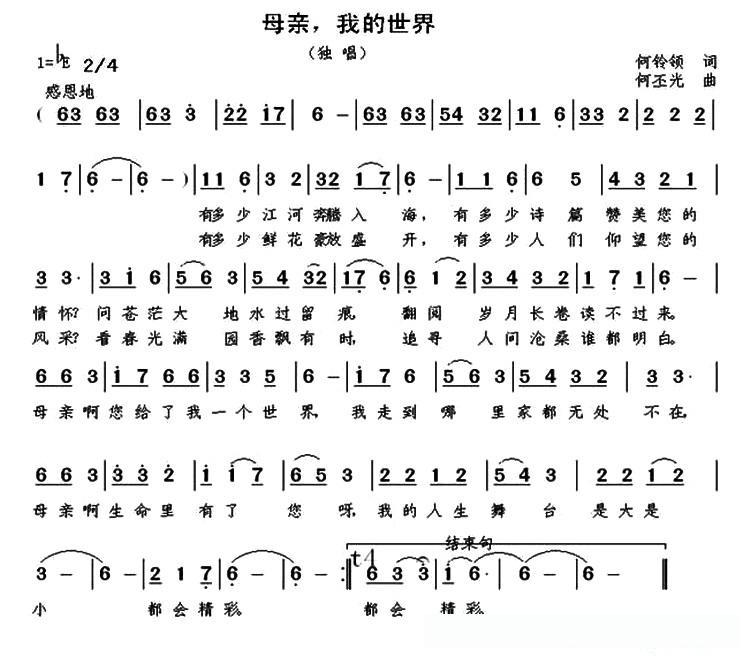 母亲，我的世界
（独 唱）
1=♭E 2/4
何铃领 词
何丕光 曲
感恩地
( 63 63 | 63 3 | 22 17 | 6 – | 63 63 | 54 32 | 11 6 | 33 2 | 2 2 2 |
1 7 | 6 – | 6 – ) | 11 6 | 3 2 | 32 17 | 6 – | 1 1 6 | 6 5 | 4 3 2 1 |
有多少江河奔腾入 海，有多少诗篇 赞美您的
有多少鲜花豪放盛 开，有多少人们 仰望您的
3 3· | 3 1 6 | 5 6 3 | 5 4 32 | 17 6 | 6 1 2 | 3 5 4 3 2 | 1 7 1 | 6 – |
情怀？问苍茫大 地水过留 痕， 翻阅 岁月长卷读不过来。
风采？看春光满 园香飘有 时， 追寻 人间沧桑谁都明白。
6 6 3 | 1 7 6 6 | 3 3 5 | 6 – | 1 7 6 | 5 6 3 | 5 4 3 2 | 3 3· |
母亲啊您给了我一个世界，我走到 哪 里家都无处 不在，
6 6 3 | 3 3 2 | 1 1 7 | 6 5 3 | 2 2 1 2 | 5 4 3 | 2 2 1 2 |
母亲啊生命里 有了 您 呀，我的人生舞 台 是大是
结束句
3 – | 6 – | 2 1 7 | 6 – | 6 – :‖ 6 3 3 | 1 6· | 6 – | 6 – ‖
小 都会精彩。 都会 精彩。